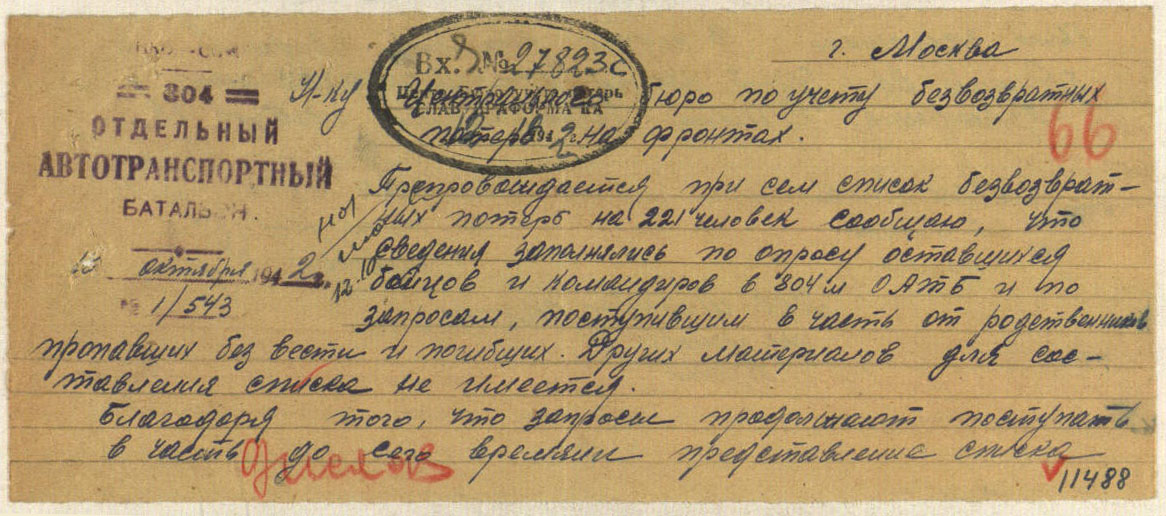 = 804 =
ОТДЕЛЬНЫЙ
АВТОТРАНСПОРТНЫЙ
БАТАЛЬОН
октября 1942 г.
№ 1/543
Вх. № 27823с
1942 г.
г. Москва
Н-ку Центрального бюро по учету безвозвратных
потерь на фронтах.
66
Препровождается при сем список безвозврат-
ных потерь на 221 человек сообщаю, что
сведения заполнялись по опросу оставшихся
бойцов и командиров в 804м ОАТБ и по
запросам, поступившим в часть от родственников
пропавших без вести и погибших. Других материалов для сос-
тавления списка не имеется.
Благодаря того, что запросы продолжают поступать
в часть до сего времяни представление списка
11488